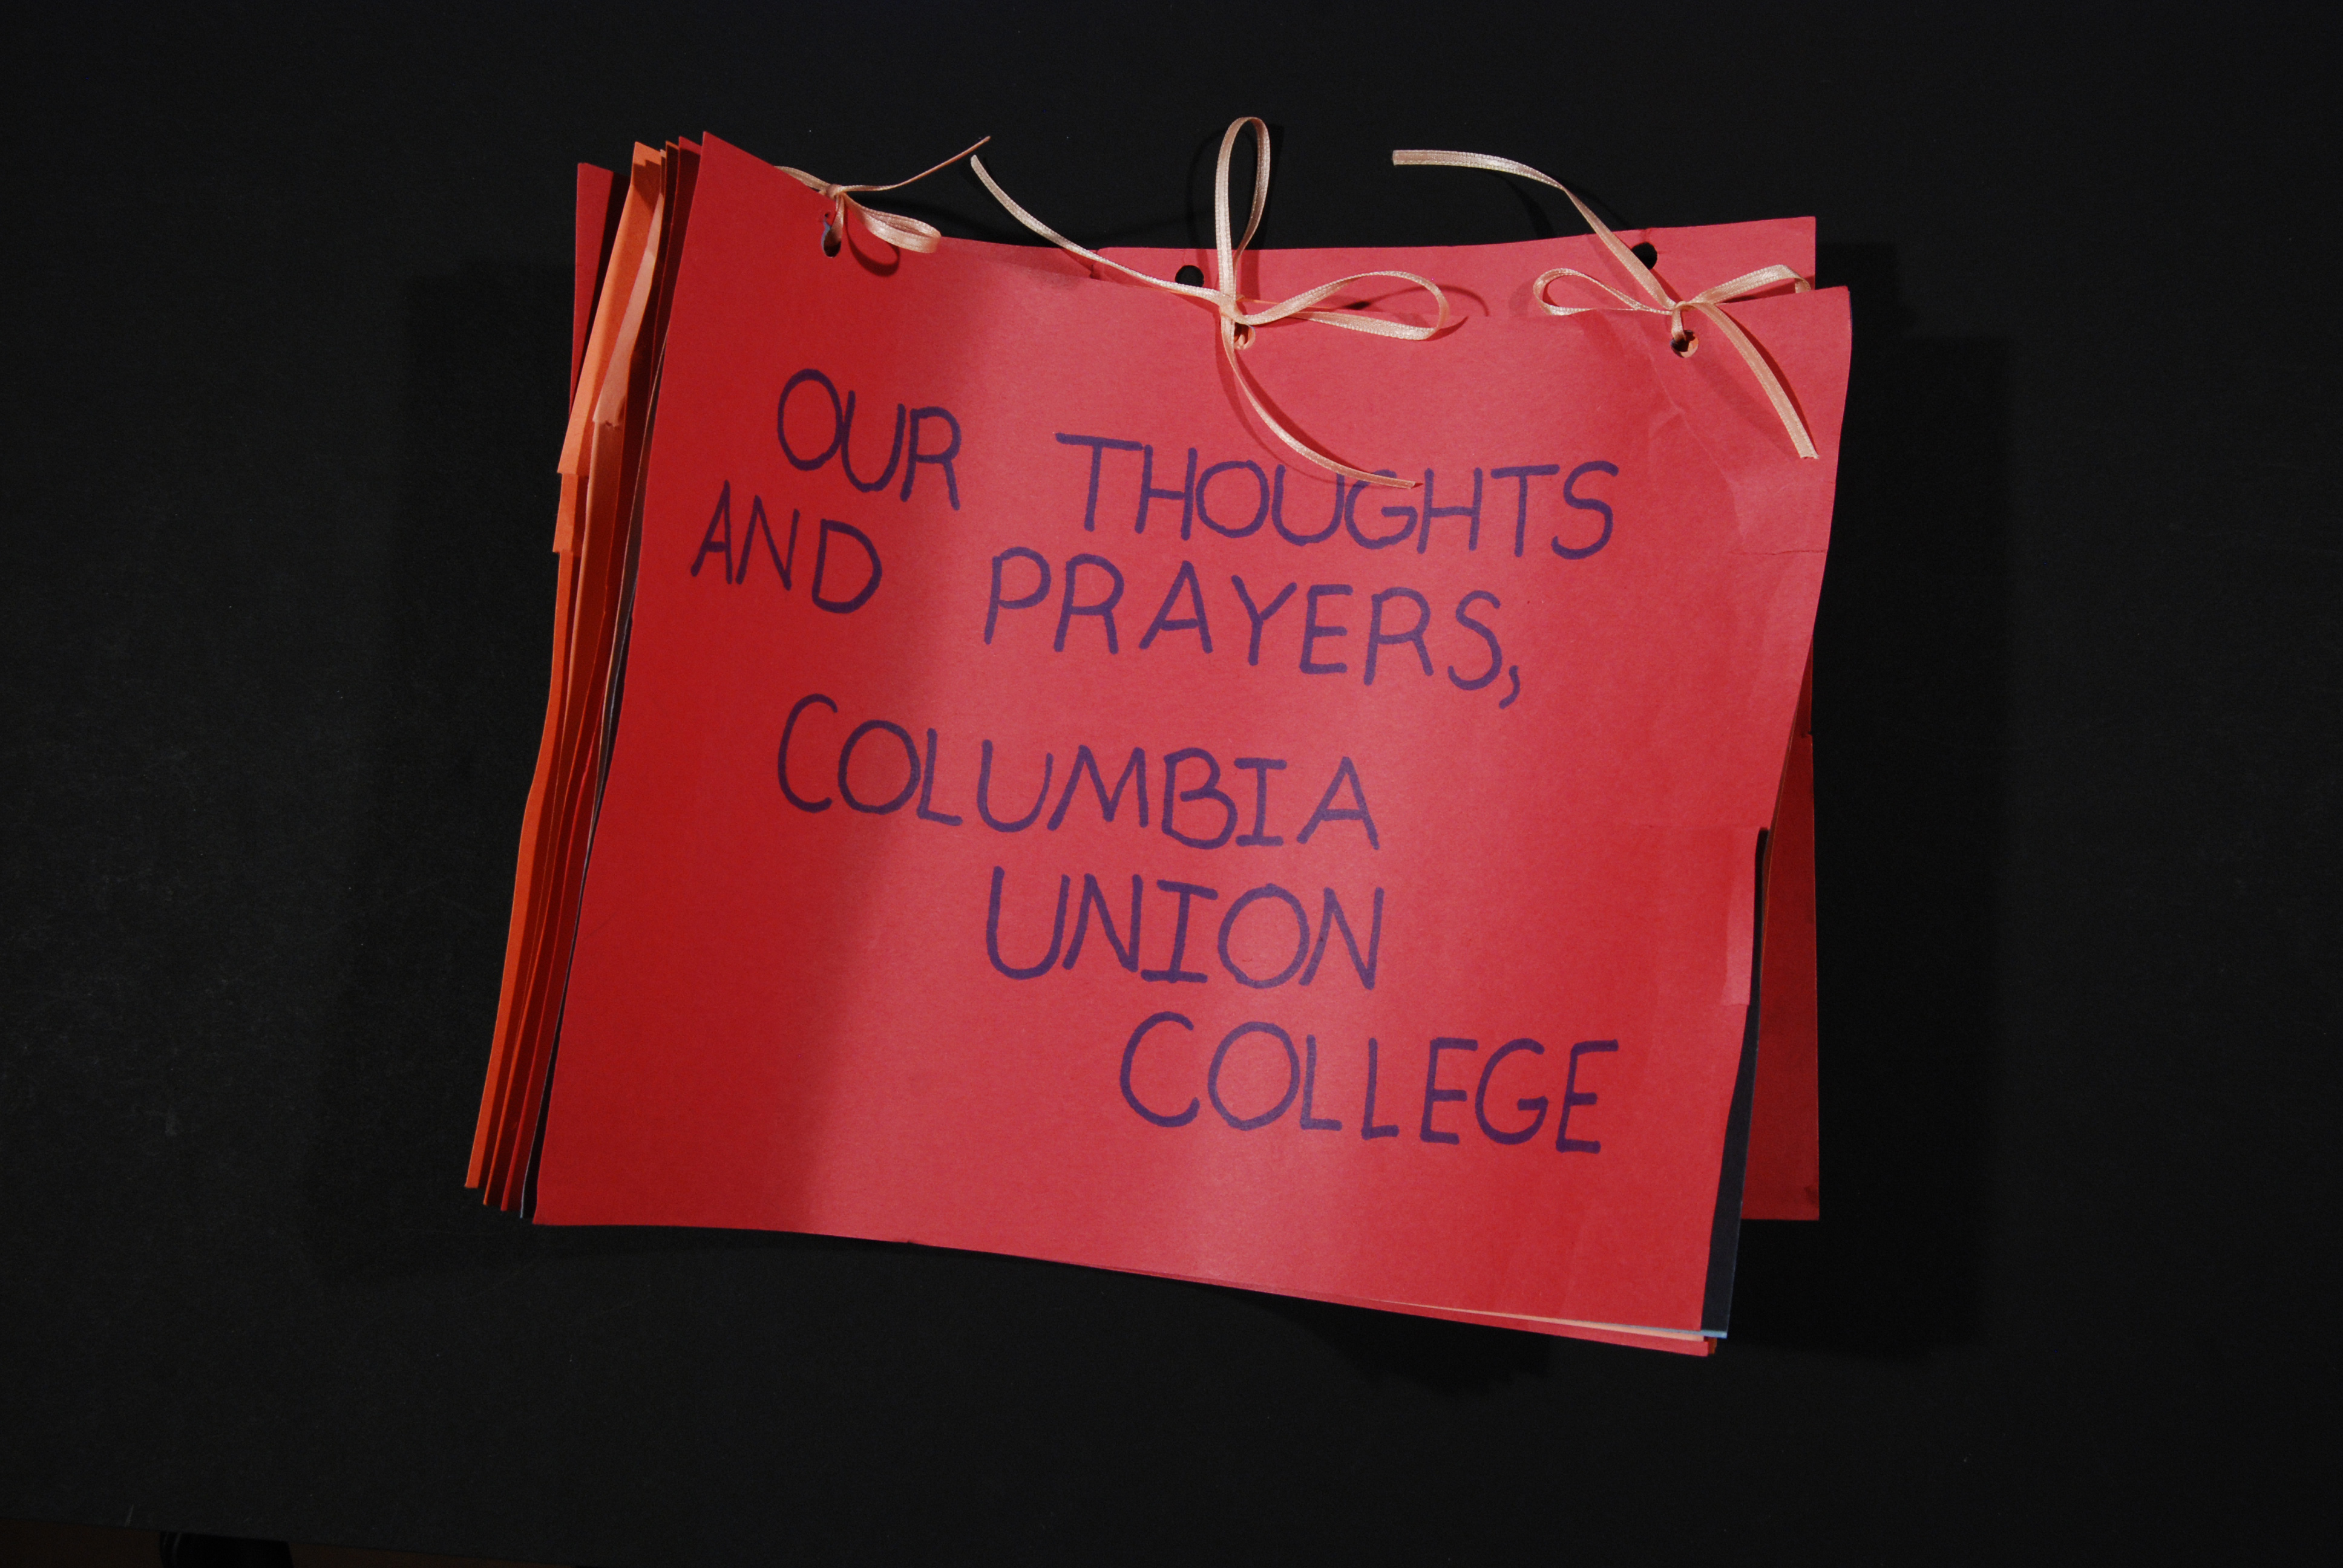 OUR THOUGHTS
AND PRAYERS,
COLUMBIA
UNION
COLLEGE